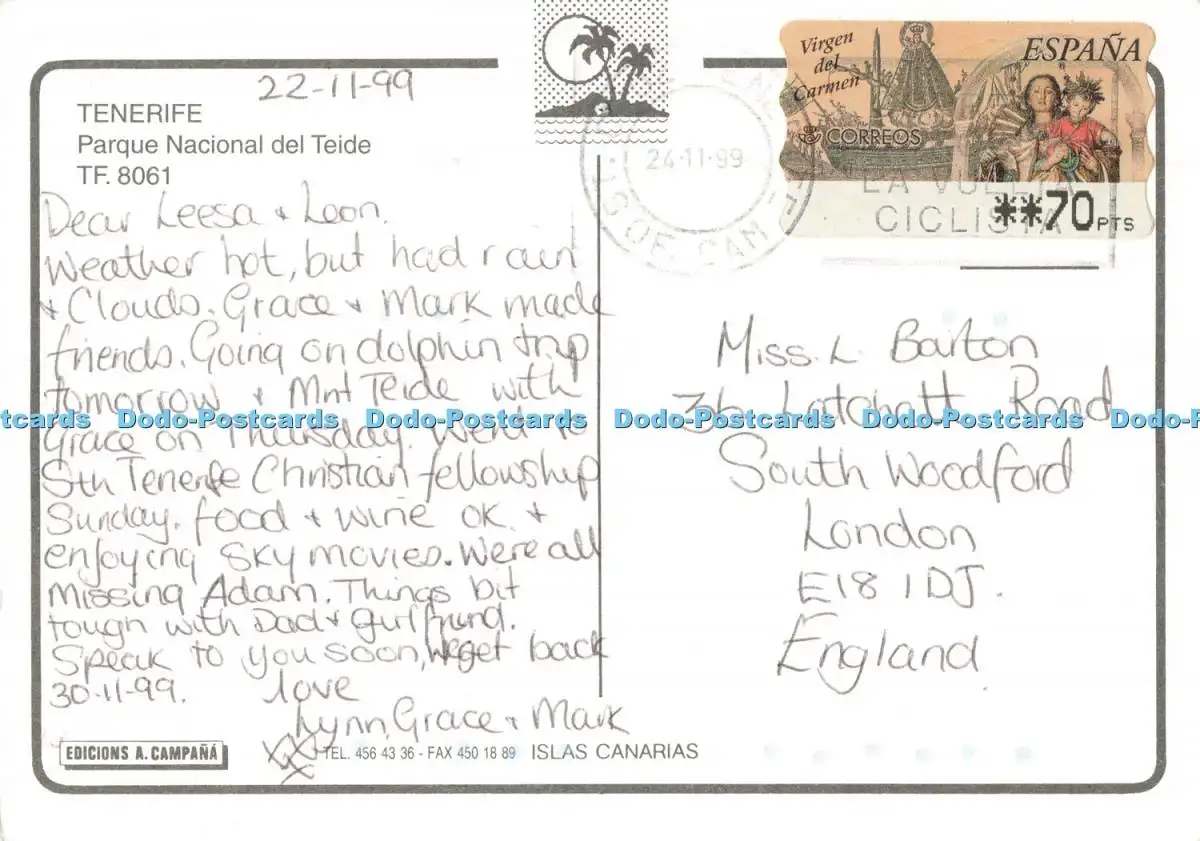 22-11-99
TENERIFE
Parque Nacional del Teide
TF. 8061
Dear Leesa + Leon.
Weather hot, but had rain
+ Clouds. Grace + Mark made
friends. Going on dolphin trip
tomorrow + Mnt Teide with
Grace on Thursday. Went to
Sth Tenerife Christian fellowship
Sunday. food + wine ok. +
enjoying SKY movies. Were all
missing Adam. Things bit
tough with Dad + girlfriend.
Speak to you soon, we get back
30-11-99.
love
Lynn, Grace + Mark
xxx
EDICIONS A. CAMPAÑÁ
TEL. 456 43 36 - FAX 450 18 89 ISLAS CANARIAS
Virgen
del
Carmen
ESPAÑA
CORREOS
**70 PTS
24-11-99
LA VUELTA
CICLISTA
Miss. L. Barton
36 Latchett Road
South Woodford
London
E18 1DJ.
England
Dodo-Postcards Dodo-Postcards Dodo-Postcards Dodo-Postcards Dodo-Postcards